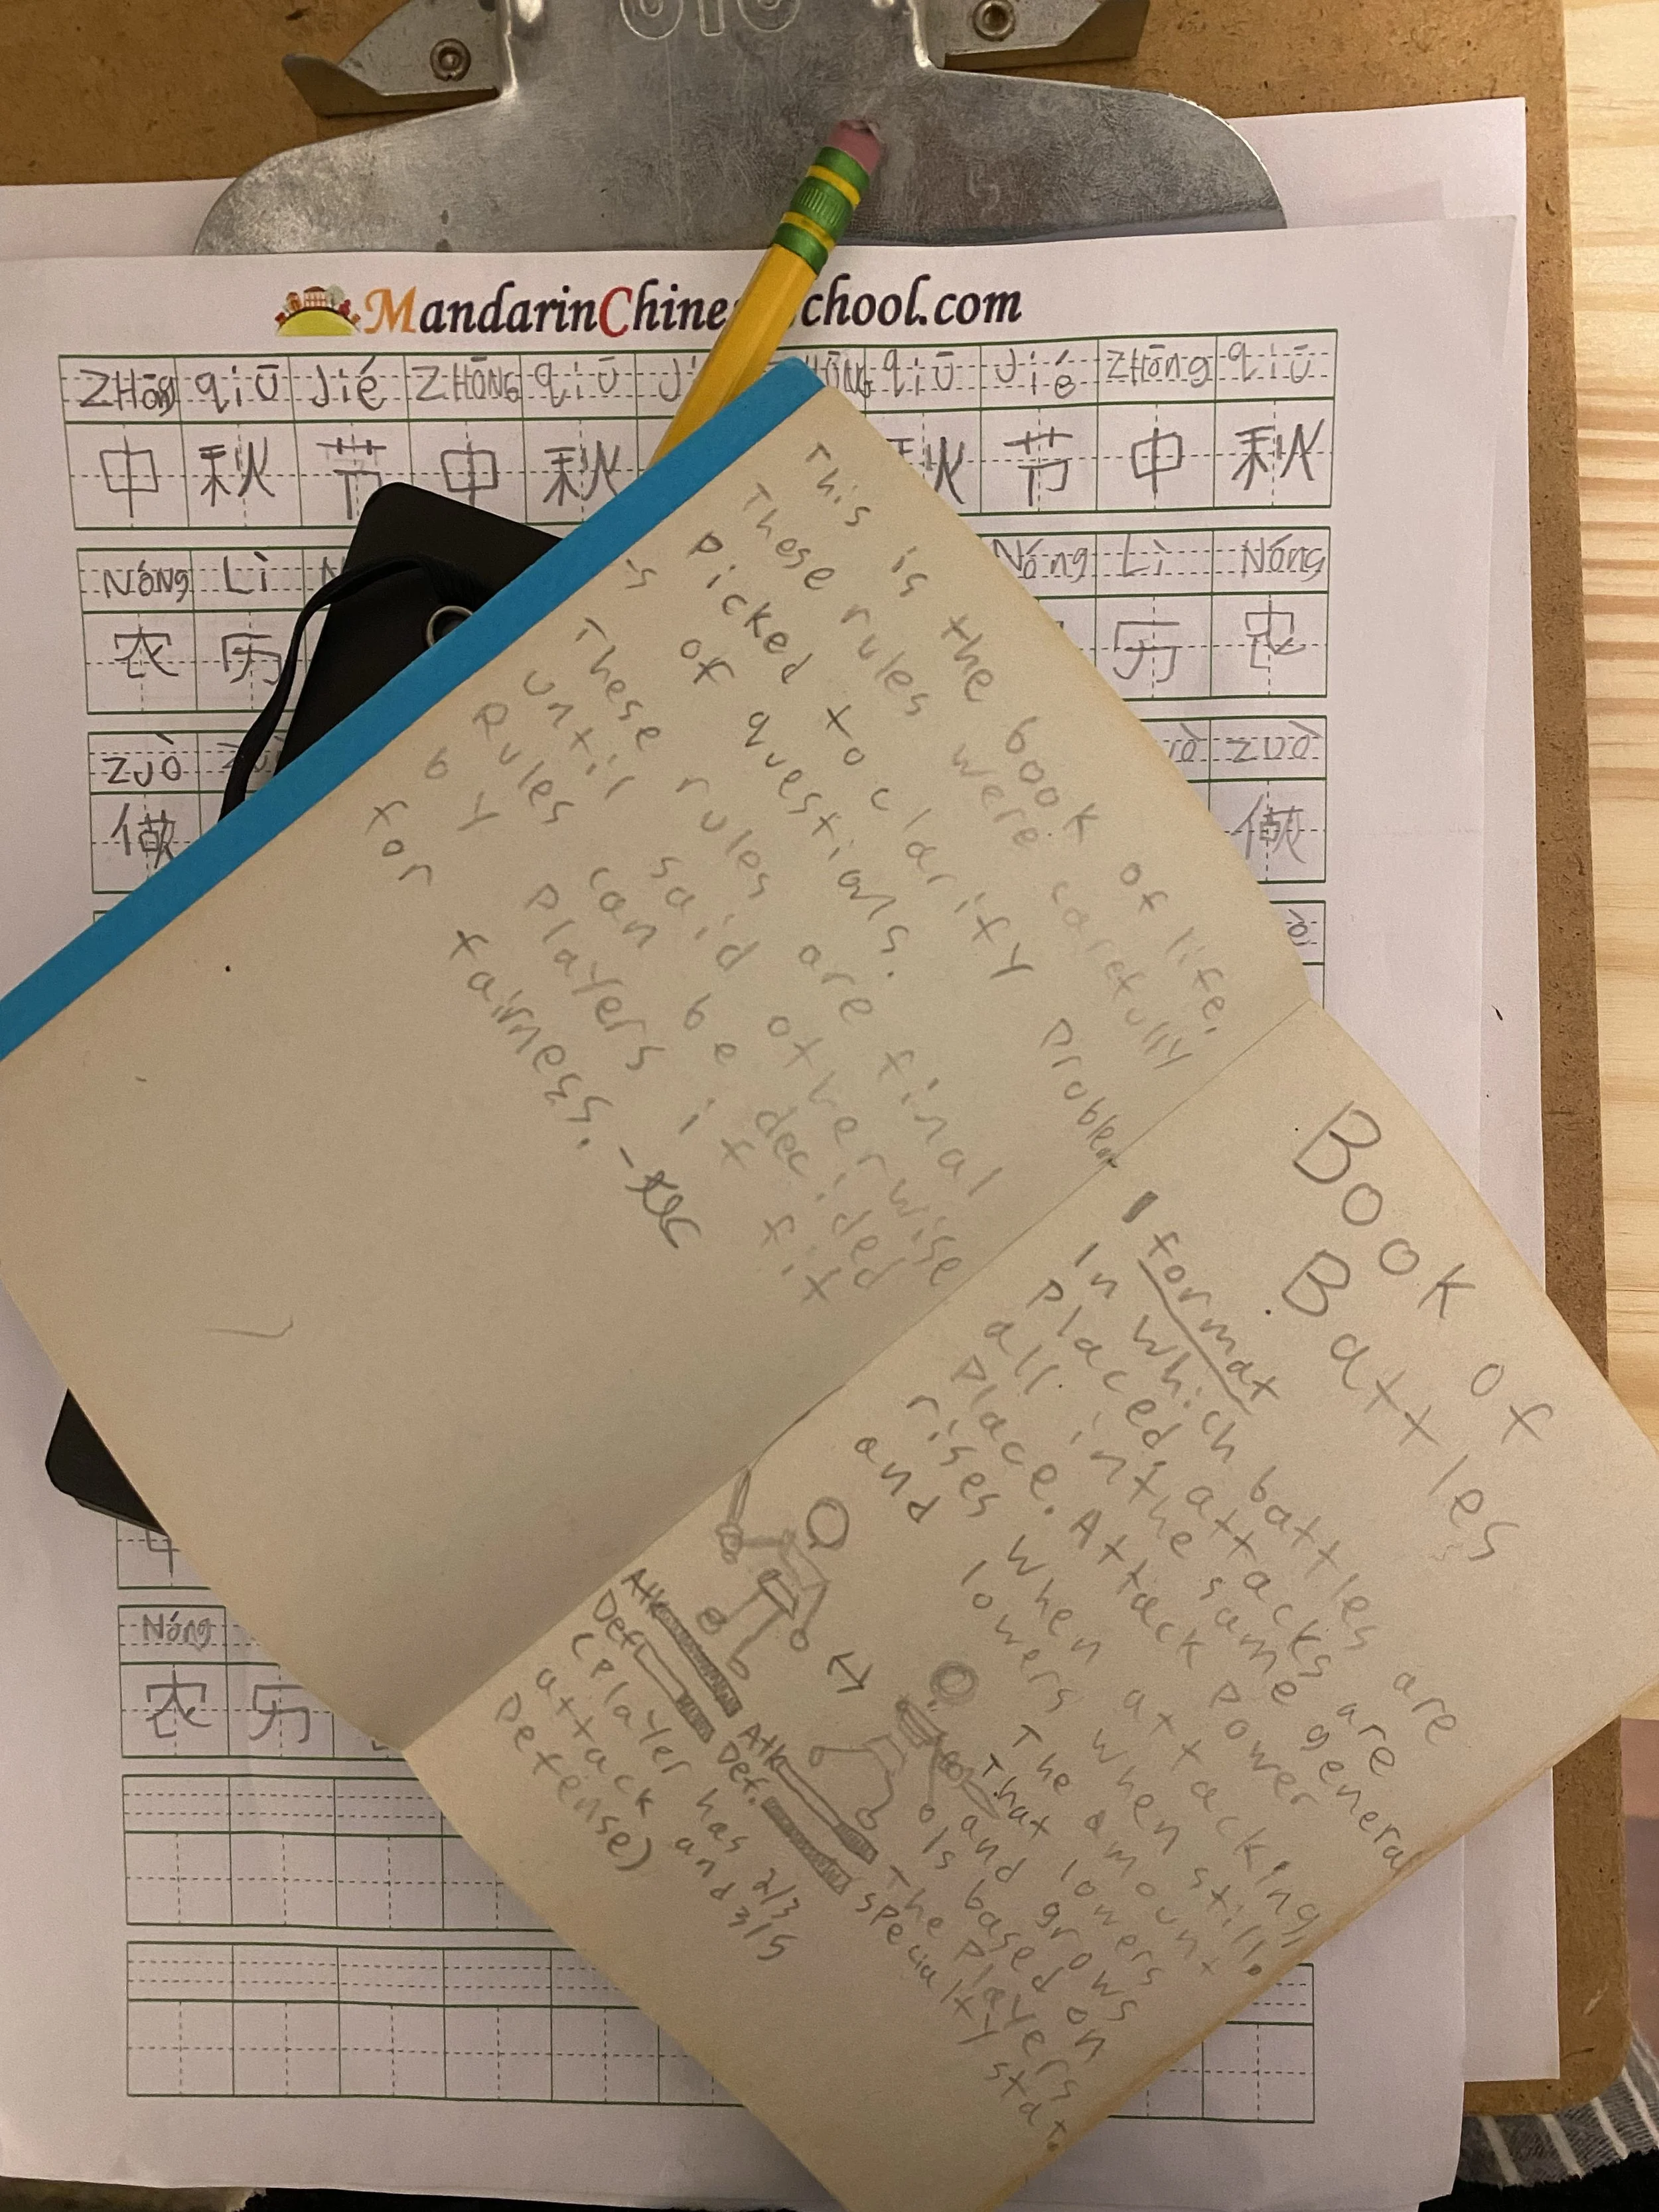 MandarinChine chool.com
ZHōng qiū Jié ZHōNG qiū Ji HōNG qiū Jié ZHōng qiū
中 秋 节 中 秋 秋 节 中 秋
NóNg Lì N Nóng Lì Nóng
农 历 历 农
zuò zuò zuò
做 做
Nóng
农 历
This is the book of life.
These rules were carefully
picked to clarify problem
is of questions.
These rules are final
until said otherwise
Rules can be decided
by players if fit
for fairness.
Book of
Battles
1 format
In which battles are
placed, attacks are
all in the same general
place. Attack power
rises when attacking
and lowers when still.
The amount
That lowers
and grows
Is based on
The players
specialty stat.
Atk
Def
Atk
Def.
(Player has 2/3
attack and 3/5
Defense)